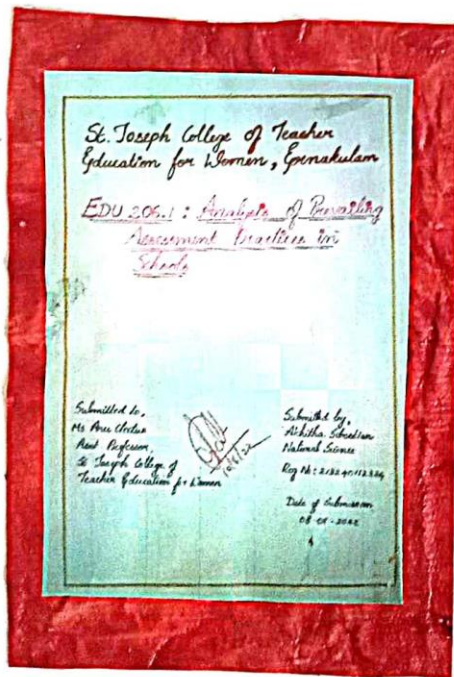 St. Joseph College of Teacher
Education for Women, Ernakulam
EDU 206.1 : Analysis of Prevailing
Assessment Practices in
Schools
Submitted to,
Ms
Asst Professor,
St. Joseph College of
Teacher Education for Women
Submitted by,
Natural Science
Reg No:
Date of Submission